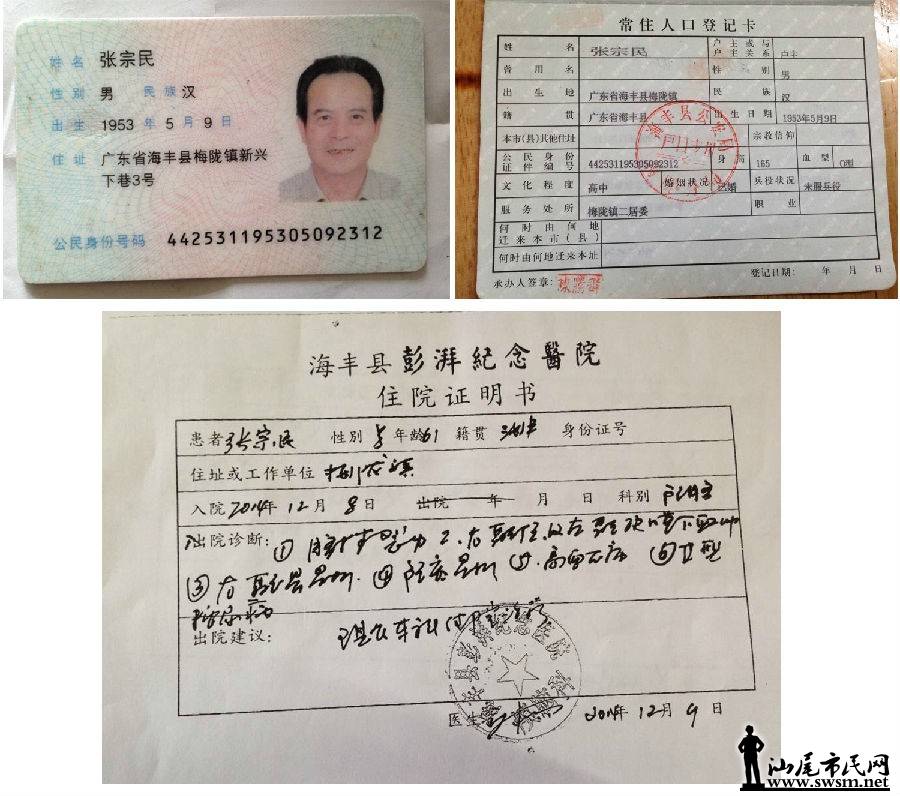 姓名 张宗民
性别 男 民族 汉
出生 1953 年 5 月 9 日
住址 广东省海丰县梅陇镇新兴
下巷3号
公民身份号码 442531195305092312
常住人口登记卡
姓名 张宗民 户主或与户主关系 户主
曾用名 性别 男
出生地 广东省海丰县梅陇镇 民族 汉
籍贯 广东省海丰县 出生日期 1953年5月9日
本市(县)其他住址 宗教信仰
公民身份证件编号 442531195305092312 身高 165 血型
文化程度 高中 婚姻状况 已婚 兵役状况 未服兵役
服务处所 梅陇镇二居委 职业
何时由何地迁来本市(县)
何时由何地迁来本址
承办人签章: 登记日期: 年 月 日
海丰县彭湃紀念醫院
住院证明书
患者 张宗民 性别 男 年龄 61 籍贯 身份证号
住址或工作单位 梅陇镇
入院 2014年 12月 8日 出院 年 月 日 科别
出院诊断: ① 2. 右
③ 右 ④ ⑤ ⑥ II型
糖尿病
出院建议:
海丰县彭湃纪念医院
医生 2014年 12月 9日
汕尾市民网
www.swsm.net